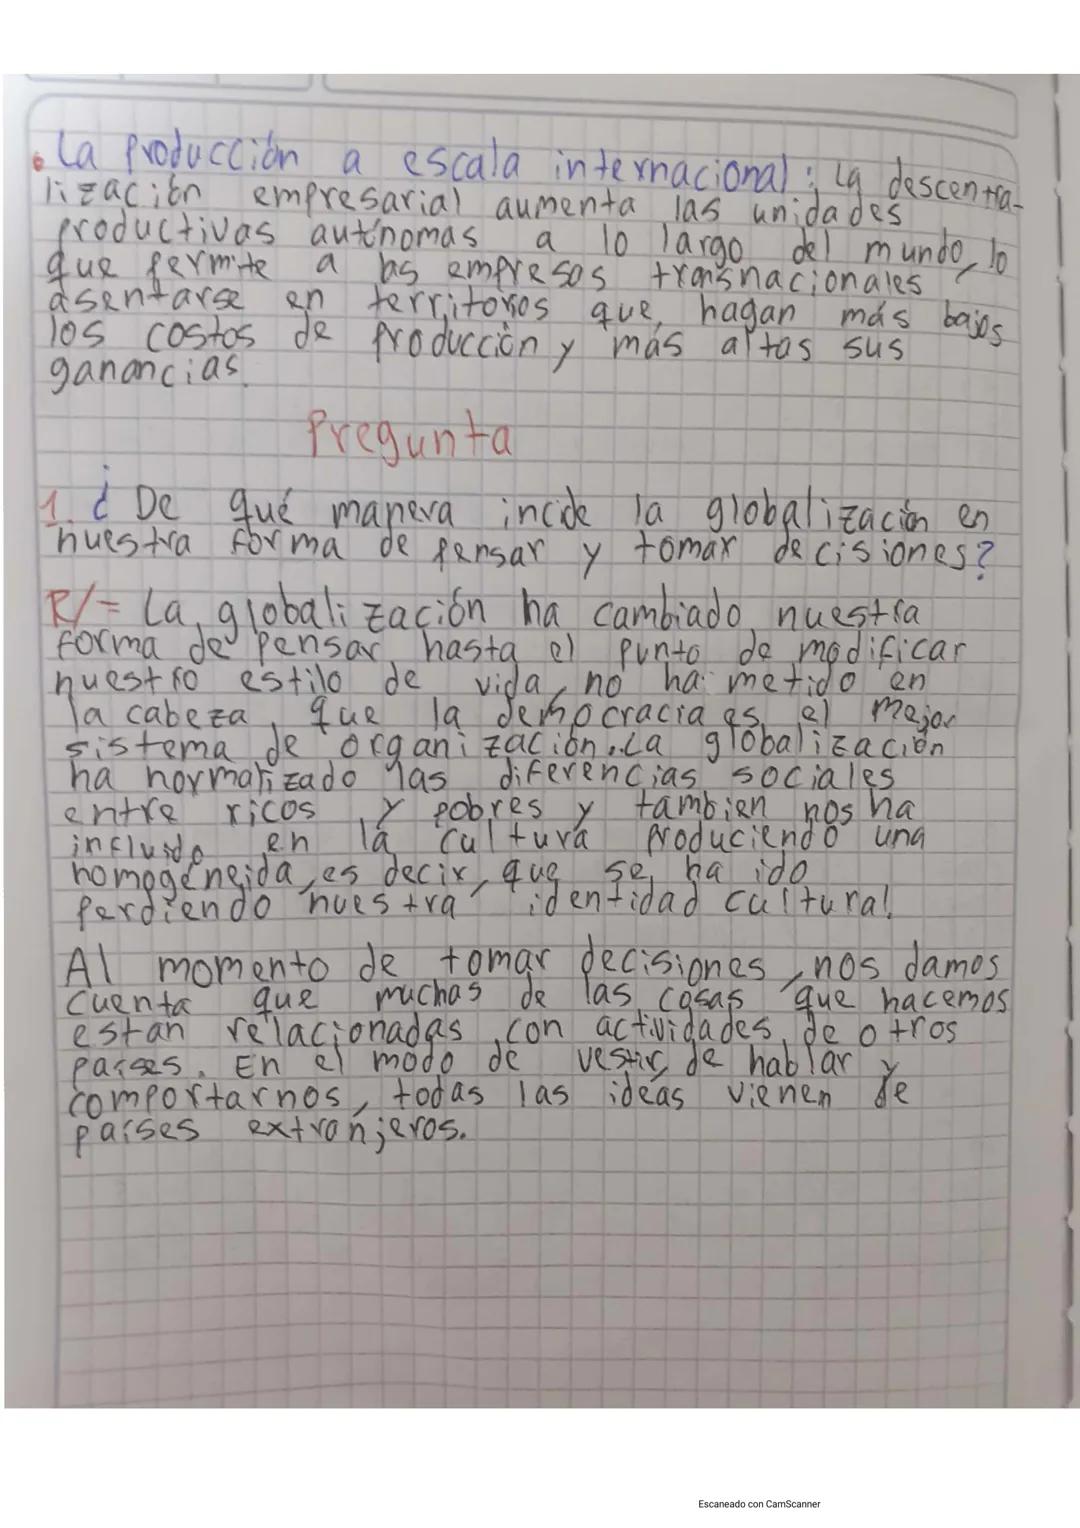 . La producción a escala internacional: La descentra-
lización empresarial aumenta las unidades
productivas autónomas a lo largo del mundo, lo
que permite a las empresas transnacionales
asentarse en territorios que hagan más bajos
los costos de producción y más altas sus
ganancias.
Pregunta
1. ¿De qué manera incide la globalización en
nuestra forma de pensar y tomar decisiones?
R/= La globalización ha cambiado nuestra
forma de pensar hasta el punto de modificar
nuestro estilo de vida, no ha metido en
la cabeza, que la democracia es el mejor
sistema de organización. La globalización
ha normalizado las diferencias sociales
entre ricos y pobres y tambien nos ha
influido en la cultura produciendo una
homogéneida, es decir, que se ha ido
perdiendo nuestra identidad cultural.
Al momento de tomar decisiones, nos damos
cuenta que muchas de las cosas que hacemos
estan relacionadas con actividades de otros
países. En el modo de vestir, de hablar y
comportarnos, todas las ideas vienen de
países extranjeros.
Escaneado con CamScanner